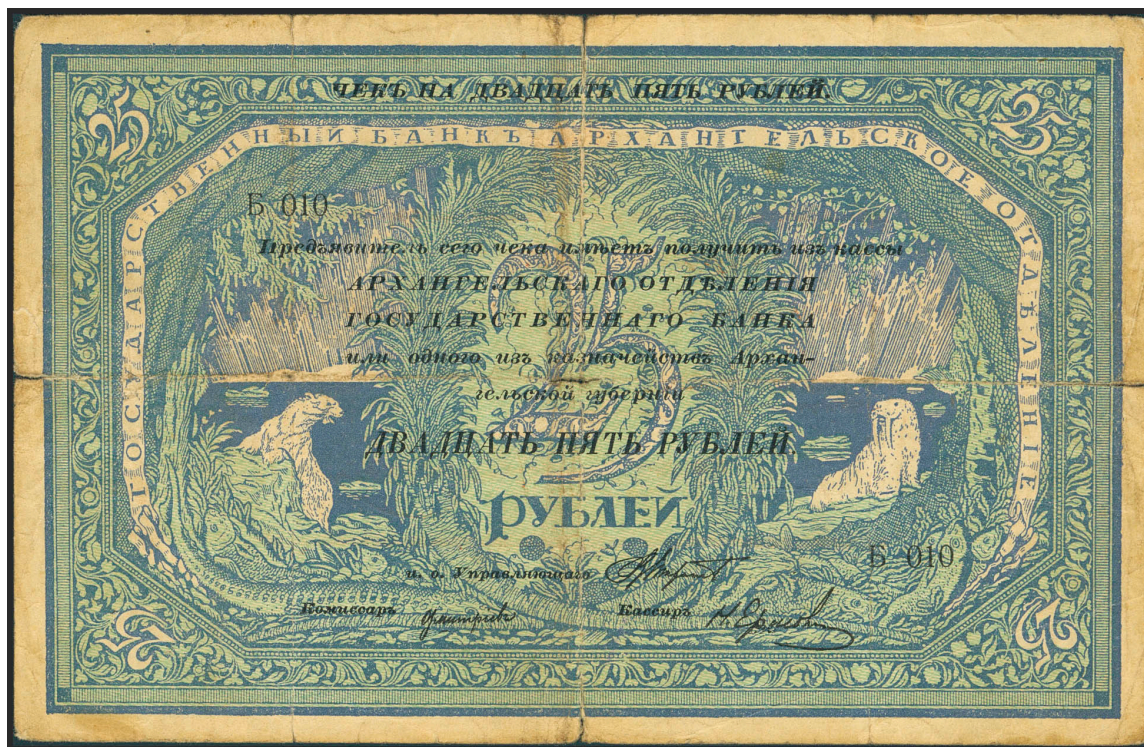 ЧЕКЪ НА ДВАДЦАТЬ ПЯТЬ РУБЛЕЙ.
25
25
ГОСУДАРСТВЕННЫЙ БАНКЪ АРХАНГЕЛЬСКОЕ ОТДѢЛЕНІЕ
Б 010
Предъявитель сего чека имѣетъ получить изъ кассы
АРХАНГЕЛЬСКАГО ОТДѢЛЕНІЯ
ГОСУДАРСТВЕННАГО БАНКА
или одного изъ казначействъ Архан-
гельской губерніи
25
ДВАДЦАТЬ ПЯТЬ РУБЛЕЙ.
РУБЛЕЙ
Б 010
и. о. Управляющаго
Комиссаръ
Кассиръ
25
25